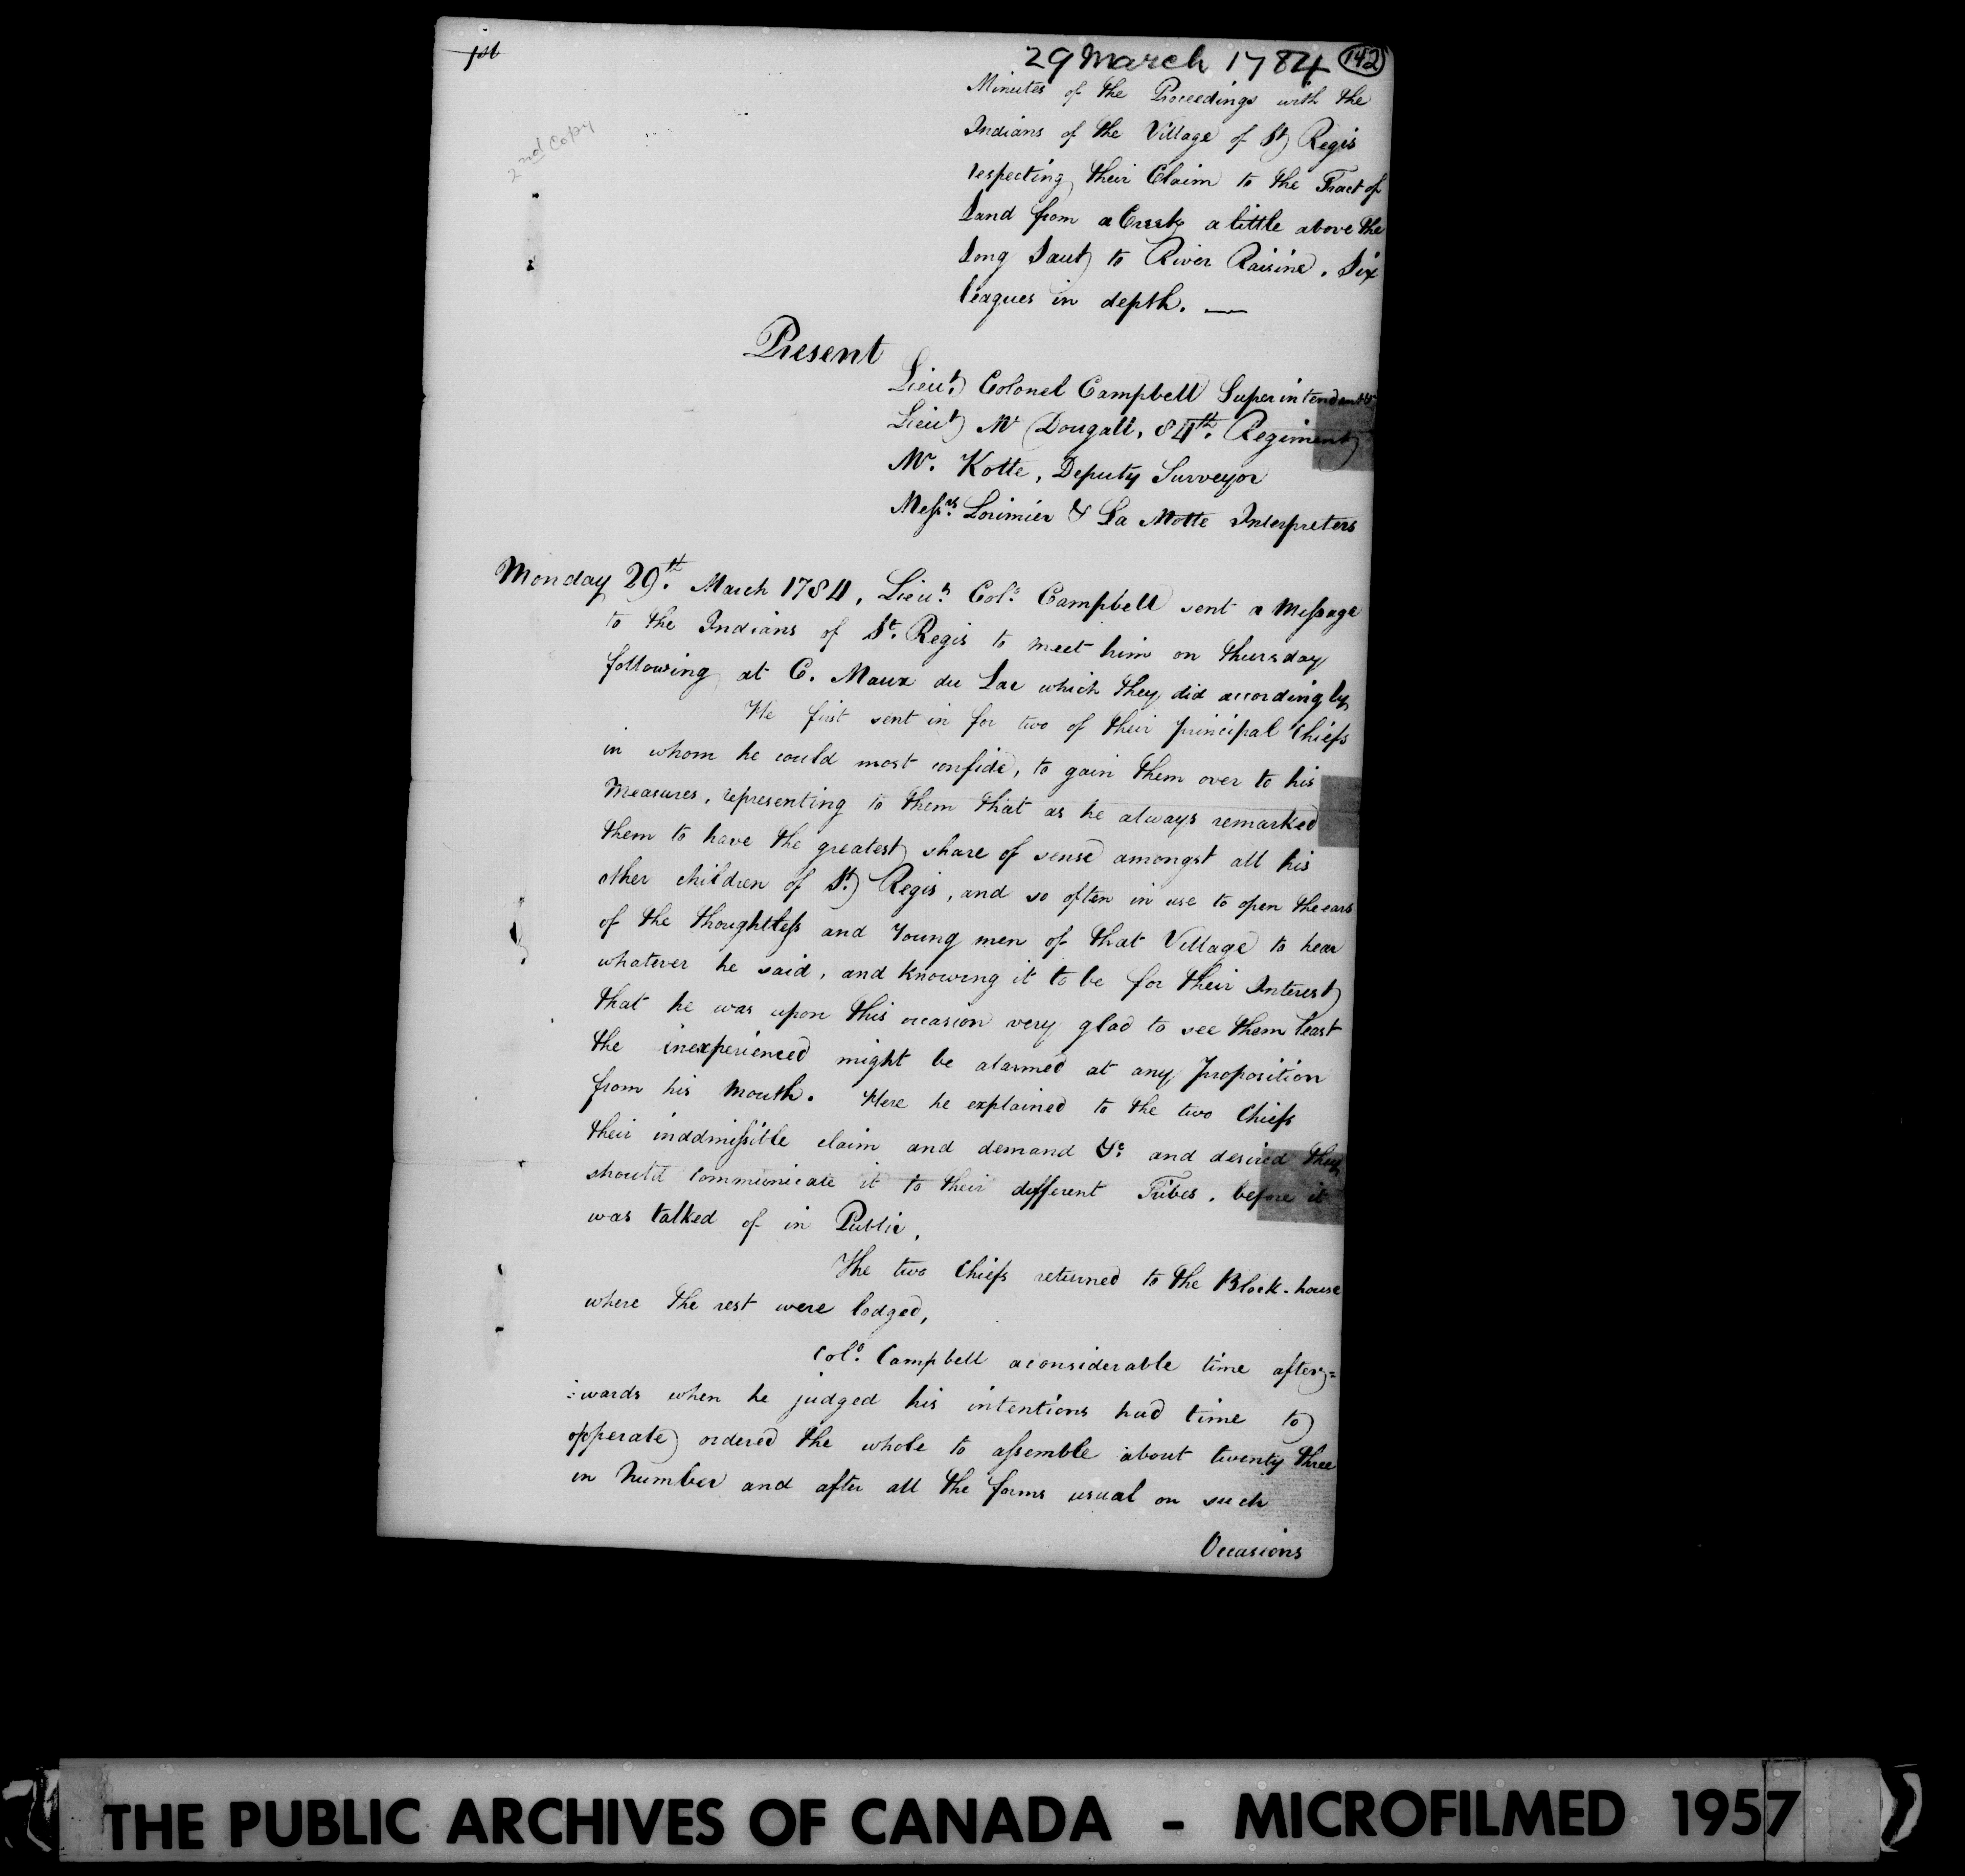 1st
29 March 1784 142
2nd Copy
Minutes of the Proceedings with the
Indians of the Village of St Regis
respecting their Claim to the Tract of
Land from a Creek a little above the
Long Saut to River Raisine. Six
leagues in depth. —
Present
Lieut. Colonel Campbell Superintendant &c
Lieut Mc Dougall, 84th. Regiment
Mr. Kotte, Deputy Surveyor
Messrs. Lorimier & La Motte Interpreters
Monday 29th. March 1784, Lieut. Colo. Campbell sent a Message
to the Indians of St. Regis to meet him on thursday
following at C. Maux du Lac which they did accordingly
He first sent in for two of their principal Chiefs
in whom he could most confide, to gain them over to his
Measures, representing to them that as he always remarked
them to have the greatest share of sense amongst all his
other children of St. Regis, and so often in use to open the ears
of the thoughtless and Young men of that Village to hear
whatever he said, and knowing it to be for their Interest
that he was upon this occasion very glad to see them least
the inexperienced might be alarmed at any Proposition
from his Mouth. Here he explained to the two Chiefs
their inddmissible claim and demand &c. and desired they
should communicate it to their different Tribes. before it
was talked of in Public,
The two Chiefs returned to the Block-house
where the rest were lodged,
Colo. Campbell a considerable time after=
:wards when he judged his intentions had time to
opperate ordered the whole to assemble about twenty three
in Number and after all the forms usual on such
Occasions
THE PUBLIC ARCHIVES OF CANADA - MICROFILMED 1957